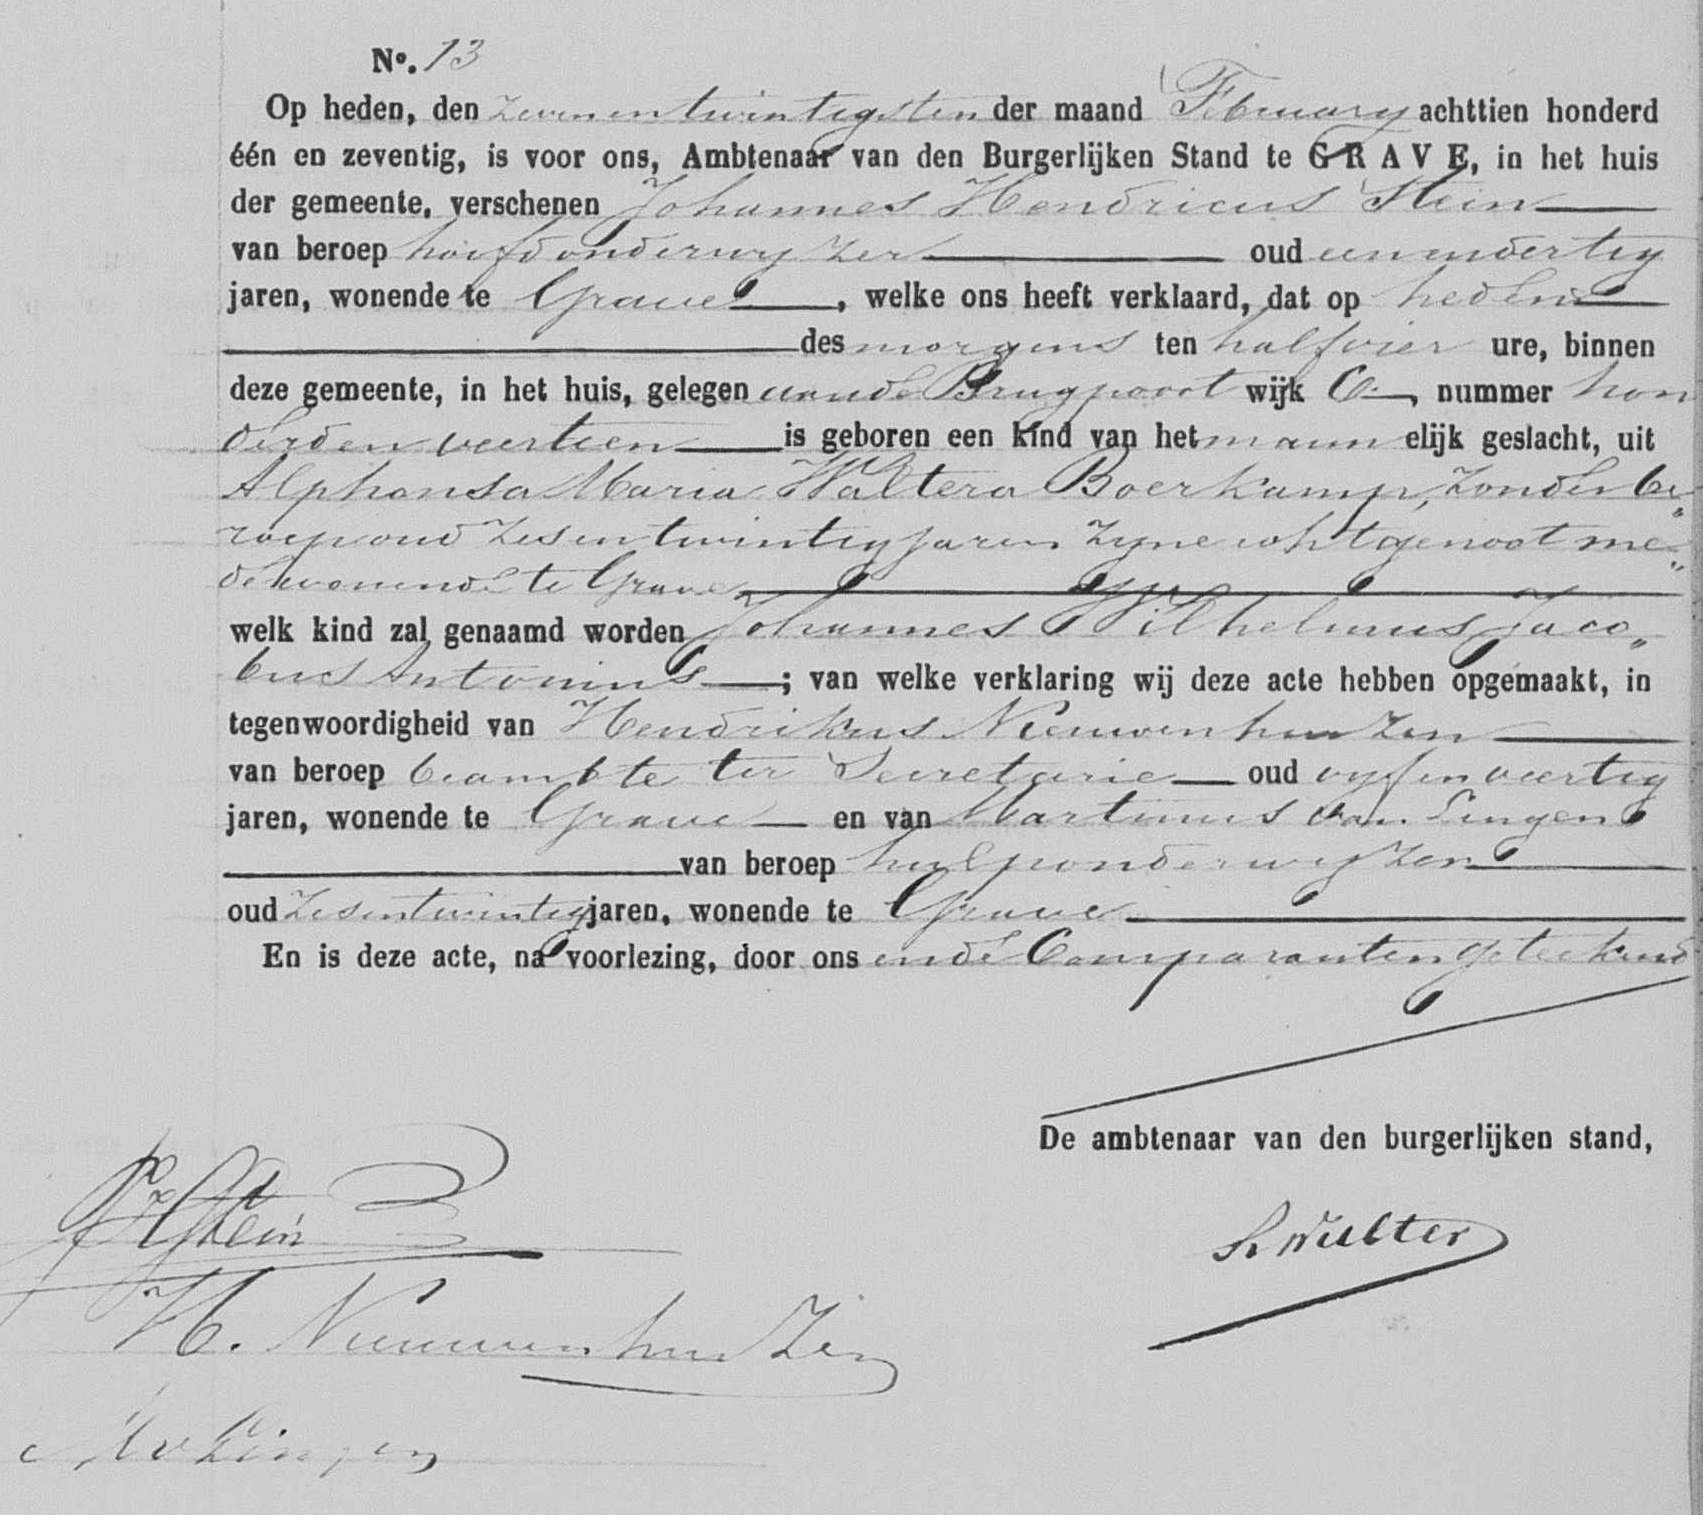 No. 13
Op heden, den zevenentwintigsten der maand February achttien honderd
één en zeventig, is voor ons, Ambtenaar van den Burgerlijken Stand te GRAVE, in het huis
der gemeente, verschenen Johannes Hendricus Stein
van beroep hoofdonderwyzer oud eenendertig
jaren, wonende te Grave, welke ons heeft verklaard, dat op heden
des morgens ten half vier ure, binnen
deze gemeente, in het huis, gelegen aan de Brugpoort wijk C, nummer hon
derd en veertien is geboren een kind van het mannelijk geslacht, uit
Alphonsa Maria Waltera Boerkamp, zonder be„
roep oud zesentwintig jaren zyne echtgenoot me„
de wonende te Grave
welk kind zal genaamd worden Johannes Wilhelmus Jaco„
bus Antonius; van welke verklaring wij deze acte hebben opgemaakt, in
tegenwoordigheid van Hendrikus Nieuwenhuizen
van beroep beambte ter Secretarie oud vyfenveertig
jaren, wonende te Grave en van Martinus van Lingen
van beroep hulponderwyzer
oud zesentwintig jaren, wonende te Grave
En is deze acte, na voorlezing, door ons en de Comparanten geteekend
De ambtenaar van den burgerlijken stand,
Stein
H. Nieuwenhuizen
M v Lingen